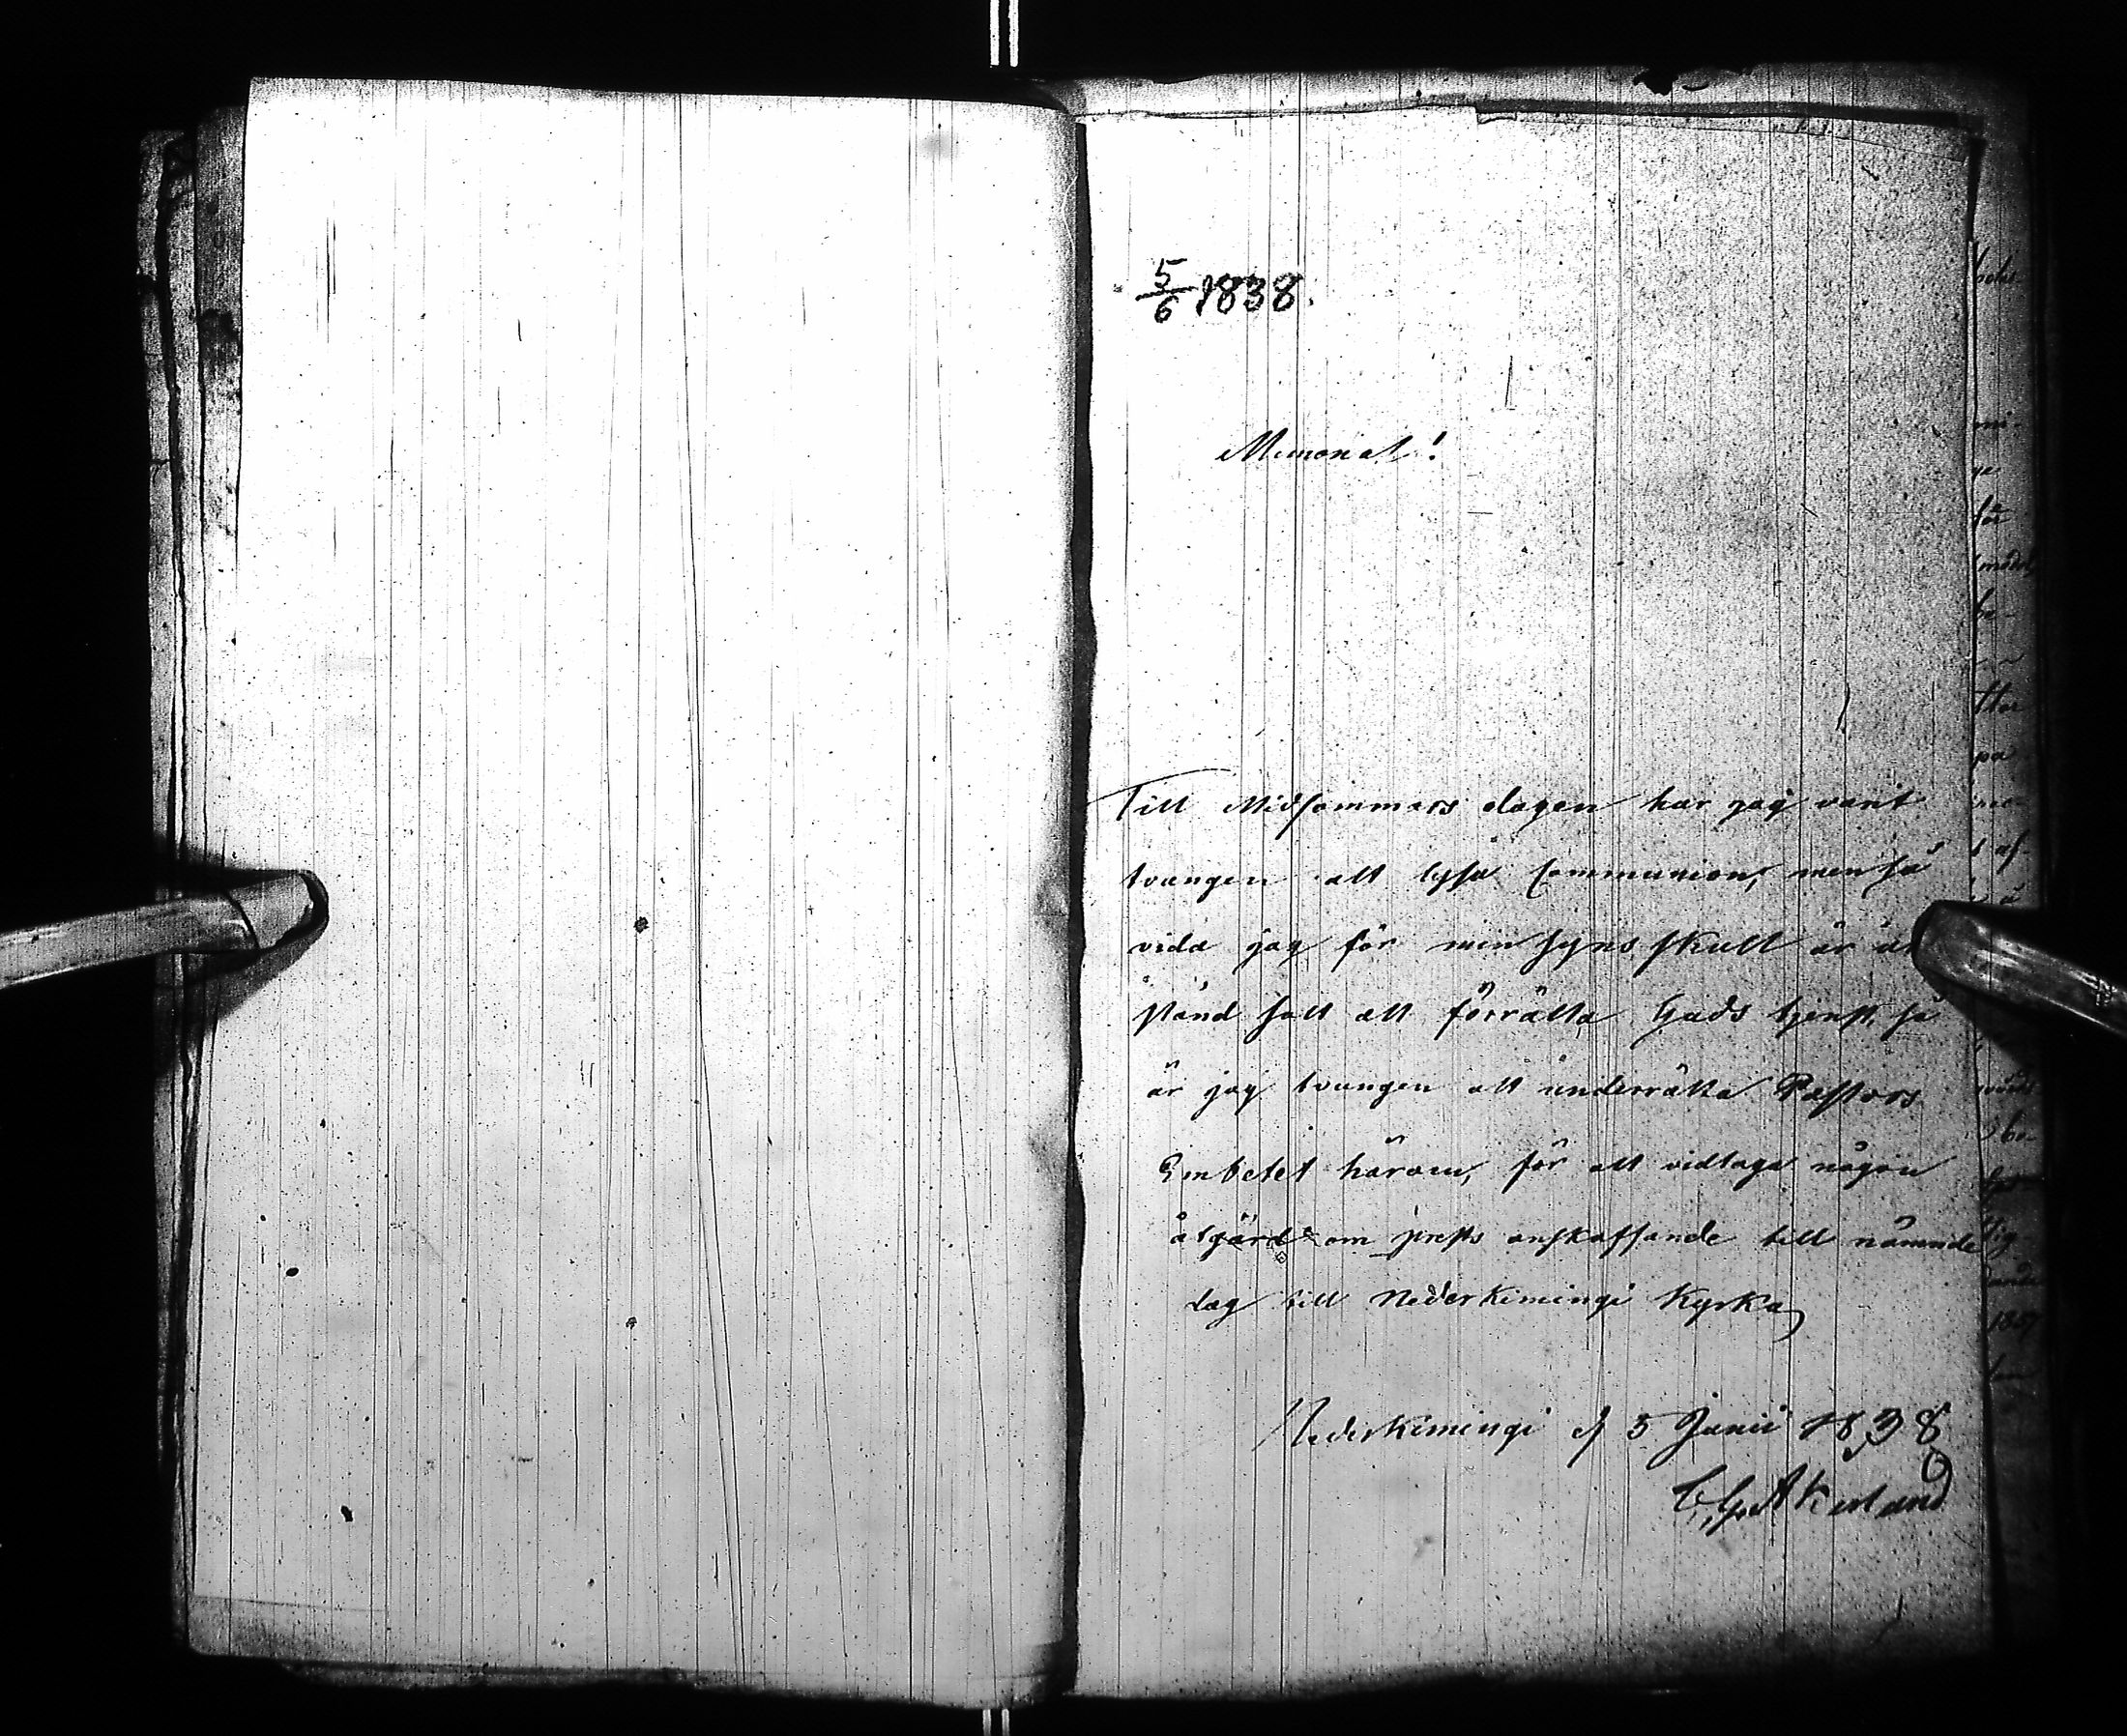 5/6 1838.
Memorial!
Till Midsommars dagen har jag varit
tvungen att lysa Communion, men så
vida jag för min syns skull är ur
stånd satt att förrätta Guds tjenst, så
är jag tvungen att underrätta Pastors
Embetet härom, för att vidtaga någon
åtgärd om prests anskaffande till nämnde
dag till Nederkimingi Kyrka
Nederkimingi d 5 Junii 1838
C. G. Åkerlund